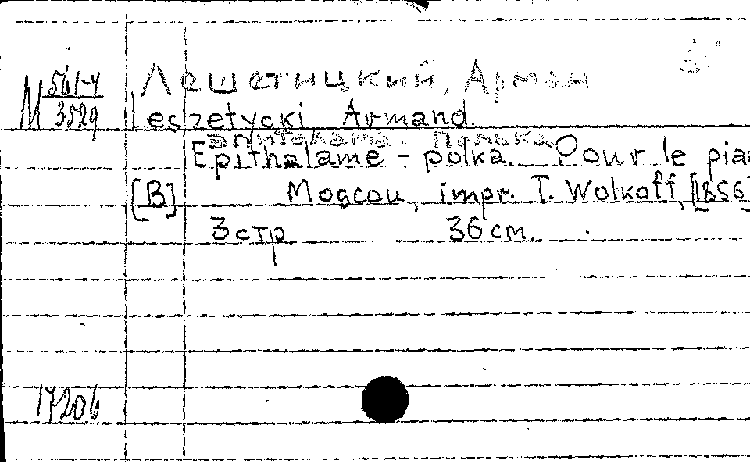 Лешетицкий, Арман
М 561-4
3529
Leszetycki Armand.
Эпиталама. Полька
Epithalame - polka. Pour le pia
[B] Moscou, impr. T. Wolkoff, [1856]
3 стр 36 см.
17206